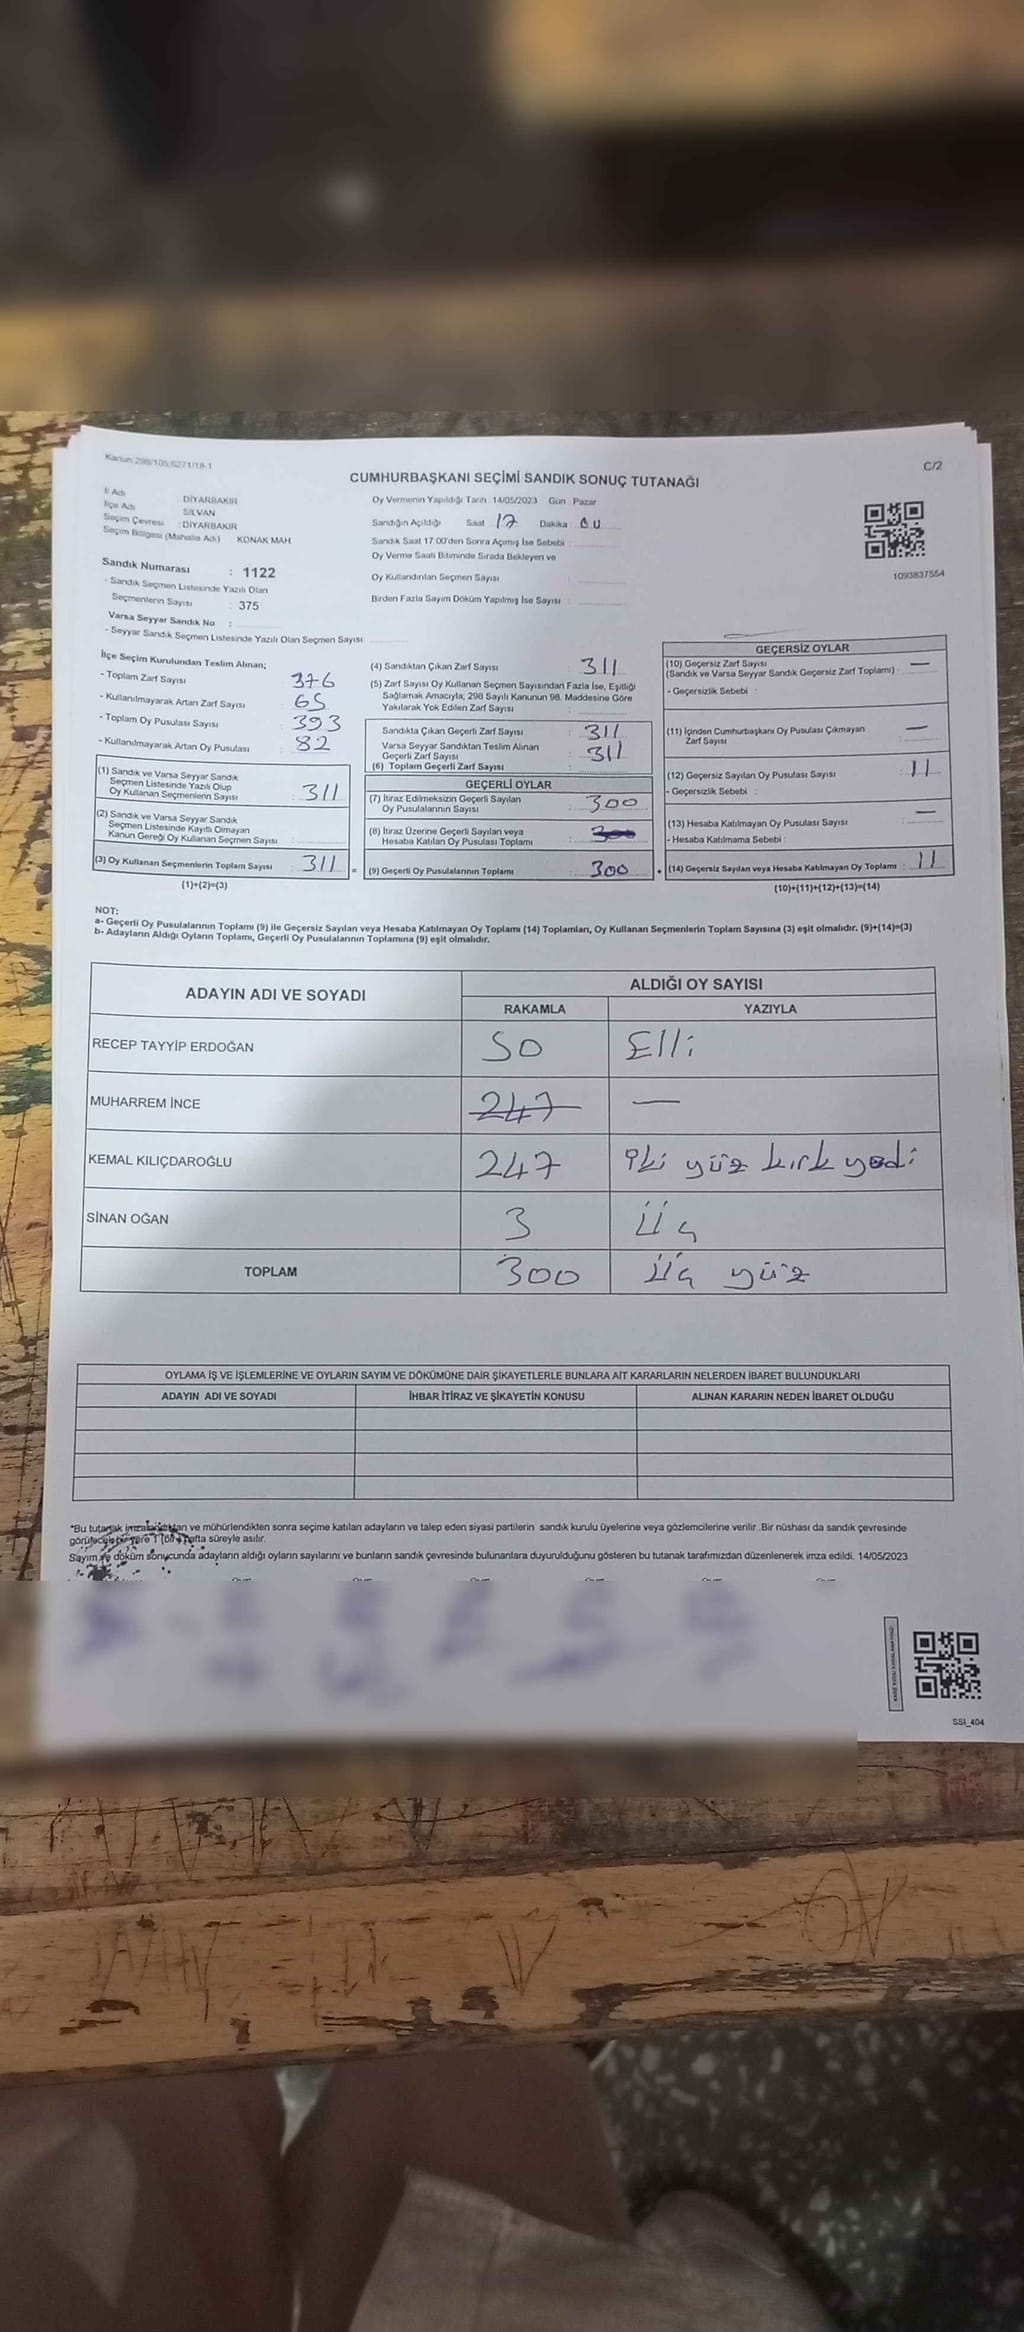 Kanun 298/105,6271/18-1
C/2
CUMHURBAŞKANI SEÇİMİ SANDIK SONUÇ TUTANAĞI
İl Adı : DİYARBAKIR
İlçe Adı : SİLVAN
Seçim Çevresi : DİYARBAKIR
Seçim Bölgesi (Mahalle Adı) KONAK MAH
Sandık Numarası : 1122
- Sandık Seçmen Listesinde Yazılı Olan
Seçmenlerin Sayısı : 375
Varsa Seyyar Sandık No :
- Seyyar Sandık Seçmen Listesinde Yazılı Olan Seçmen Sayısı
Oy Vermenin Yapıldığı Tarih : 14/05/2023 Gün : Pazar
Sandığın Açıldığı Saat 17 Dakika :
Sandık Saat 17.00'den Sonra Açımış İse Sebebi :
Oy Verme Saati Bitiminde Sırada Bekleyen ve
Oy Kullandırılan Seçmen Sayısı :
Birden Fazla Sayım Döküm Yapılmış İse Sayısı :
1093837554
İlçe Seçim Kurulundan Teslim Alınan;
- Toplam Zarf Sayısı : 376
- Kullanılmayarak Artan Zarf Sayısı : 65
- Toplam Oy Pusulası Sayısı : 393
- Kullanılmayarak Artan Oy Pusulası : 82
(1) Sandık ve Varsa Seyyar Sandık
Seçmen Listesinde Yazılı Olup
Oy Kullanan Seçmenlerin Sayısı : 311
(2) Sandık ve Varsa Seyyar Sandık
Seçmen Listesinde Kayıtlı Olmayan
Kanun Gereği Oy Kullanan Seçmen Sayısı :
(3) Oy Kullanan Seçmenlerin Toplam Sayısı : 311 =
(1)+(2)=(3)
(4) Sandıktan Çıkan Zarf Sayısı : 311
(5) Zarf Sayısı Oy Kullanan Seçmen Sayısından Fazla İse, Eşitliği
Sağlamak Amacıyla, 298 Sayılı Kanunun 98. Maddesine Göre
Yakılarak Yok Edilen Zarf Sayısı :
Sandıkta Çıkan Geçerli Zarf Sayısı : 311
Varsa Seyyar Sandıktan Teslim Alınan
Geçerli Zarf Sayısı : 311
(6) Toplam Geçerli Zarf Sayısı :
GEÇERLİ OYLAR
(7) İtiraz Edilmeksizin Geçerli Sayılan
Oy Pusulalarının Sayısı : 300
(8) İtiraz Üzerine Geçerli Sayılan veya
Hesaba Katılan Oy Pusulası Toplamı : 300
(9) Geçerli Oy Pusulalarının Toplamı : 300 +
GEÇERSİZ OYLAR
(10) Geçersiz Zarf Sayısı
(Sandık ve Varsa Seyyar Sandık Geçersiz Zarf Toplamı) : —
- Geçersizlik Sebebi :
(11) İçinden Cumhurbaşkanı Oy Pusulası Çıkmayan
Zarf Sayısı : —
(12) Geçersiz Sayılan Oy Pusulası Sayısı : 11
- Geçersizlik Sebebi :
(13) Hesaba Katılmayan Oy Pusulası Sayısı : —
- Hesaba Katılmama Sebebi :
(14) Geçersiz Sayılan veya Hesaba Katılmayan Oy Toplamı : 11
(10)+(11)+(12)+(13)=(14)
NOT:
a- Geçerli Oy Pusulalarının Toplamı (9) ile Geçersiz Sayılan veya Hesaba Katılmayan Oy Toplamı (14) Toplamları, Oy Kullanan Seçmenlerin Toplam Sayısına (3) eşit olmalıdır. (9)+(14)=(3)
b- Adayların Aldığı Oyların Toplamı, Geçerli Oy Pusulalarının Toplamına (9) eşit olmalıdır.
ADAYIN ADI VE SOYADI ALDIĞI OY SAYISI
RAKAMLA YAZIYLA
RECEP TAYYİP ERDOĞAN 50 Elli
MUHARREM İNCE 247 —
KEMAL KILIÇDAROĞLU 247 iki yüz kırk yedi
SİNAN OĞAN 3 üç
TOPLAM 300 üç yüz
OYLAMA İŞ VE İŞLEMLERİNE VE OYLARIN SAYIM VE DÖKÜMÜNE DAİR ŞİKAYETLERLE BUNLARA AİT KARARLARIN NELERDEN İBARET BULUNDUKLARI
ADAYIN ADI VE SOYADI İHBAR İTİRAZ VE ŞİKAYETİN KONUSU ALINAN KARARIN NEDEN İBARET OLDUĞU
*Bu tutanak imzalandıktan ve mühürlendikten sonra seçime katılan adayların ve talep eden siyasi partilerin sandık kurulu üyelerine veya gözlemcilerine verilir .Bir nüshası da sandık çevresinde
görülecek bir yere 1 (bir) hafta süreyle asılır.
Sayım ve döküm sonucunda adayların aldığı oyların sayılarını ve bunların sandık çevresinde bulunanlara duyurulduğunu gösteren bu tutanak tarafımızdan düzenlenerek imza edildi. 14/05/2023
SSI_404